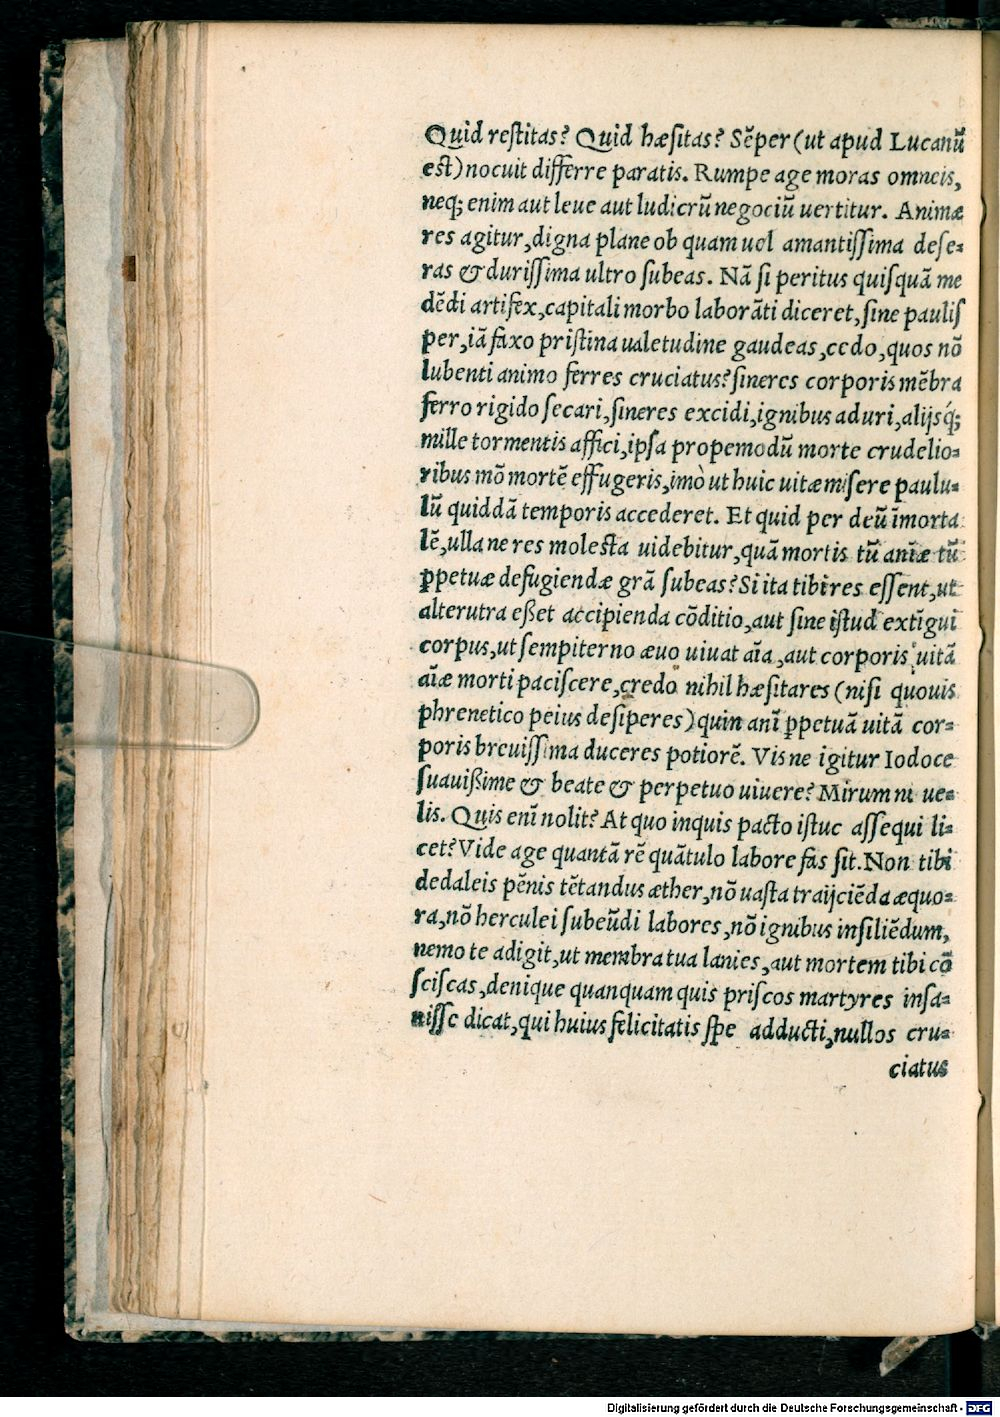 Quid reſtitas? Quid hæſitas? Sẽper (ut apud Lucanũ
est) nocuit differre paratis. Rumpe age moras omneis,
neq; enim aut leue aut ludicrũ negociũ uertitur. Animæ
res agitur, digna plane ob quam uel amantiſſima deſe-
ras & duriſſima ultro ſubeas. Nã ſi peritus quiſquã me
dẽdi artifex, capitali morbo laborãti diceret, ſine pauliſ
per, iã faxo priſtina ualetudine gaudeas, cedo, quos nõ
lubenti animo ferres cruciatus? ſineres corporis mẽbra
ferro rigido ſecari, ſineres excidi, ignibus aduri, alijsq́;
mille tormentis affici, ipſa propemodũ morte crudelio-
ribus mõ mortẽ effugeris, imò ut huic uitæ miſere paulu-
lũ quiddã temporis accederet. Et quid per deũ ĩmorta
lẽ, ulla ne res molesta uidebitur, quã mortis tũ anĩæ tũ
ꝑpetuæ defugiendæ grã ſubeas? Si ita tibi res eſſent, ut
alterutra eßet accipienda cõditio, aut ſine iſtud extĩgui
corpus, ut ſempiterno æuo uiuat aĩa, aut corporis uitã
aĩæ morti paciſcere, credo nihil hæſitares (niſi quouis
phrenetico peius deſiperes) quin anĩ ꝑpetuã uitã cor-
poris breuiſſima duceres potiorẽ. Vis ne igitur Iodoce
ſuauißime & beate & perpetuo uiuere? Mirum ni ue-
lis. Quis enĩ nolit? At quo inquis pacto iſtuc aſſequi li-
cet? Vide age quantã rẽ quãtulo labore fas ſit. Non tibi
dedaleis pẽnis tẽtandus æther, nõ uaſta traijciẽda æquo-
ra, nõ herculei ſubeũdi labores, nõ ignibus inſiliẽdum,
nemo te adigit, ut membra tua lanies, aut mortem tibi cõ
ſciſcas, denique quanquam quis priſcos martyres inſa-
niſſe dicat, qui huius felicitatis ſpe adducti, nullos cru-
ciatus
Digitalisierung gefördert durch die Deutsche Forschungsgemeinschaft - DFG